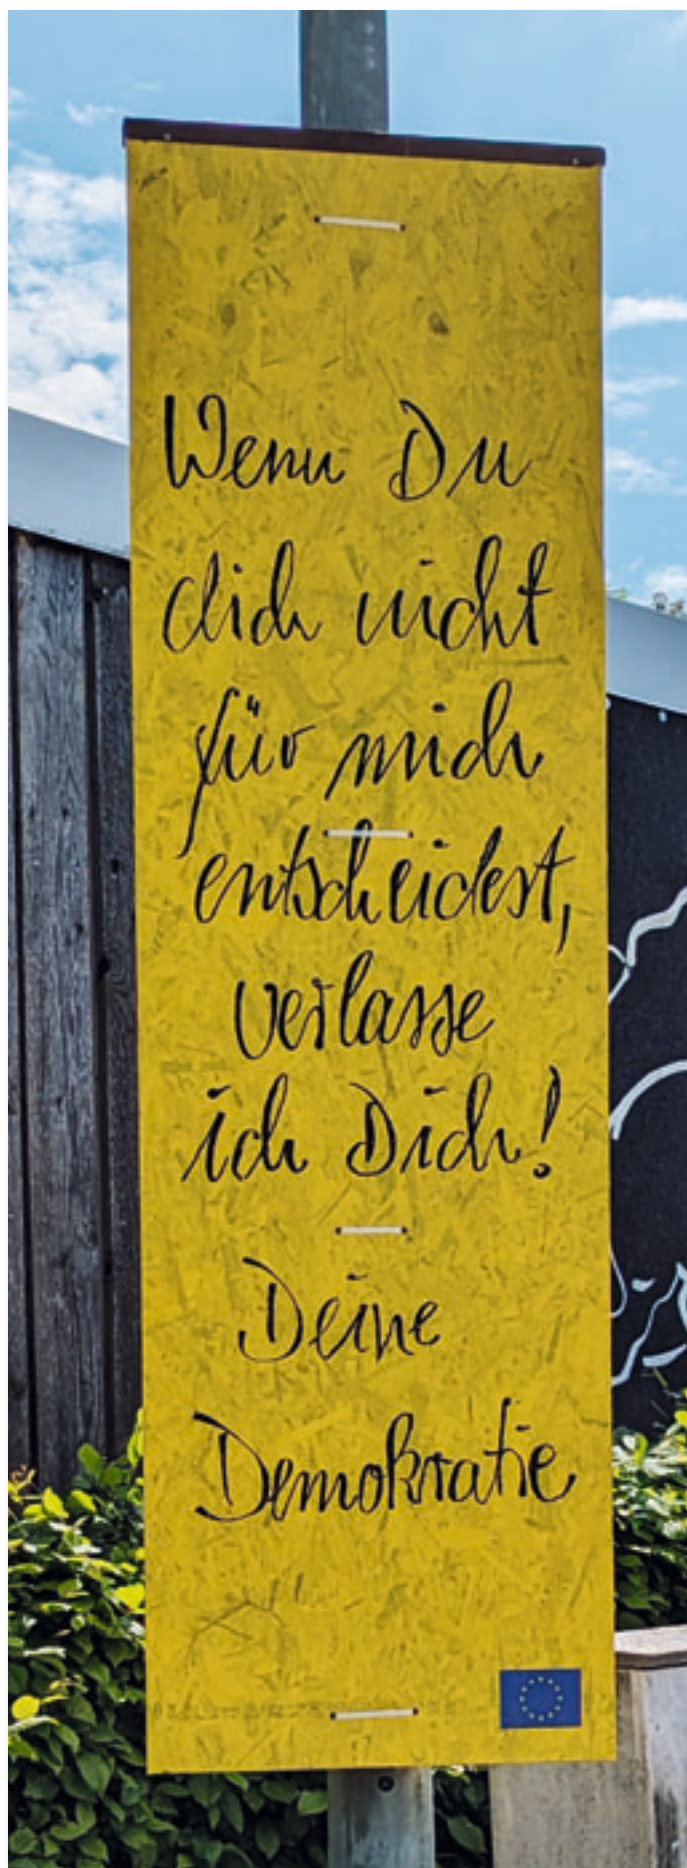 Wenn Du
dich nicht
für mich
entscheidest,
verlasse
ich Dich!
Deine
Demokratie